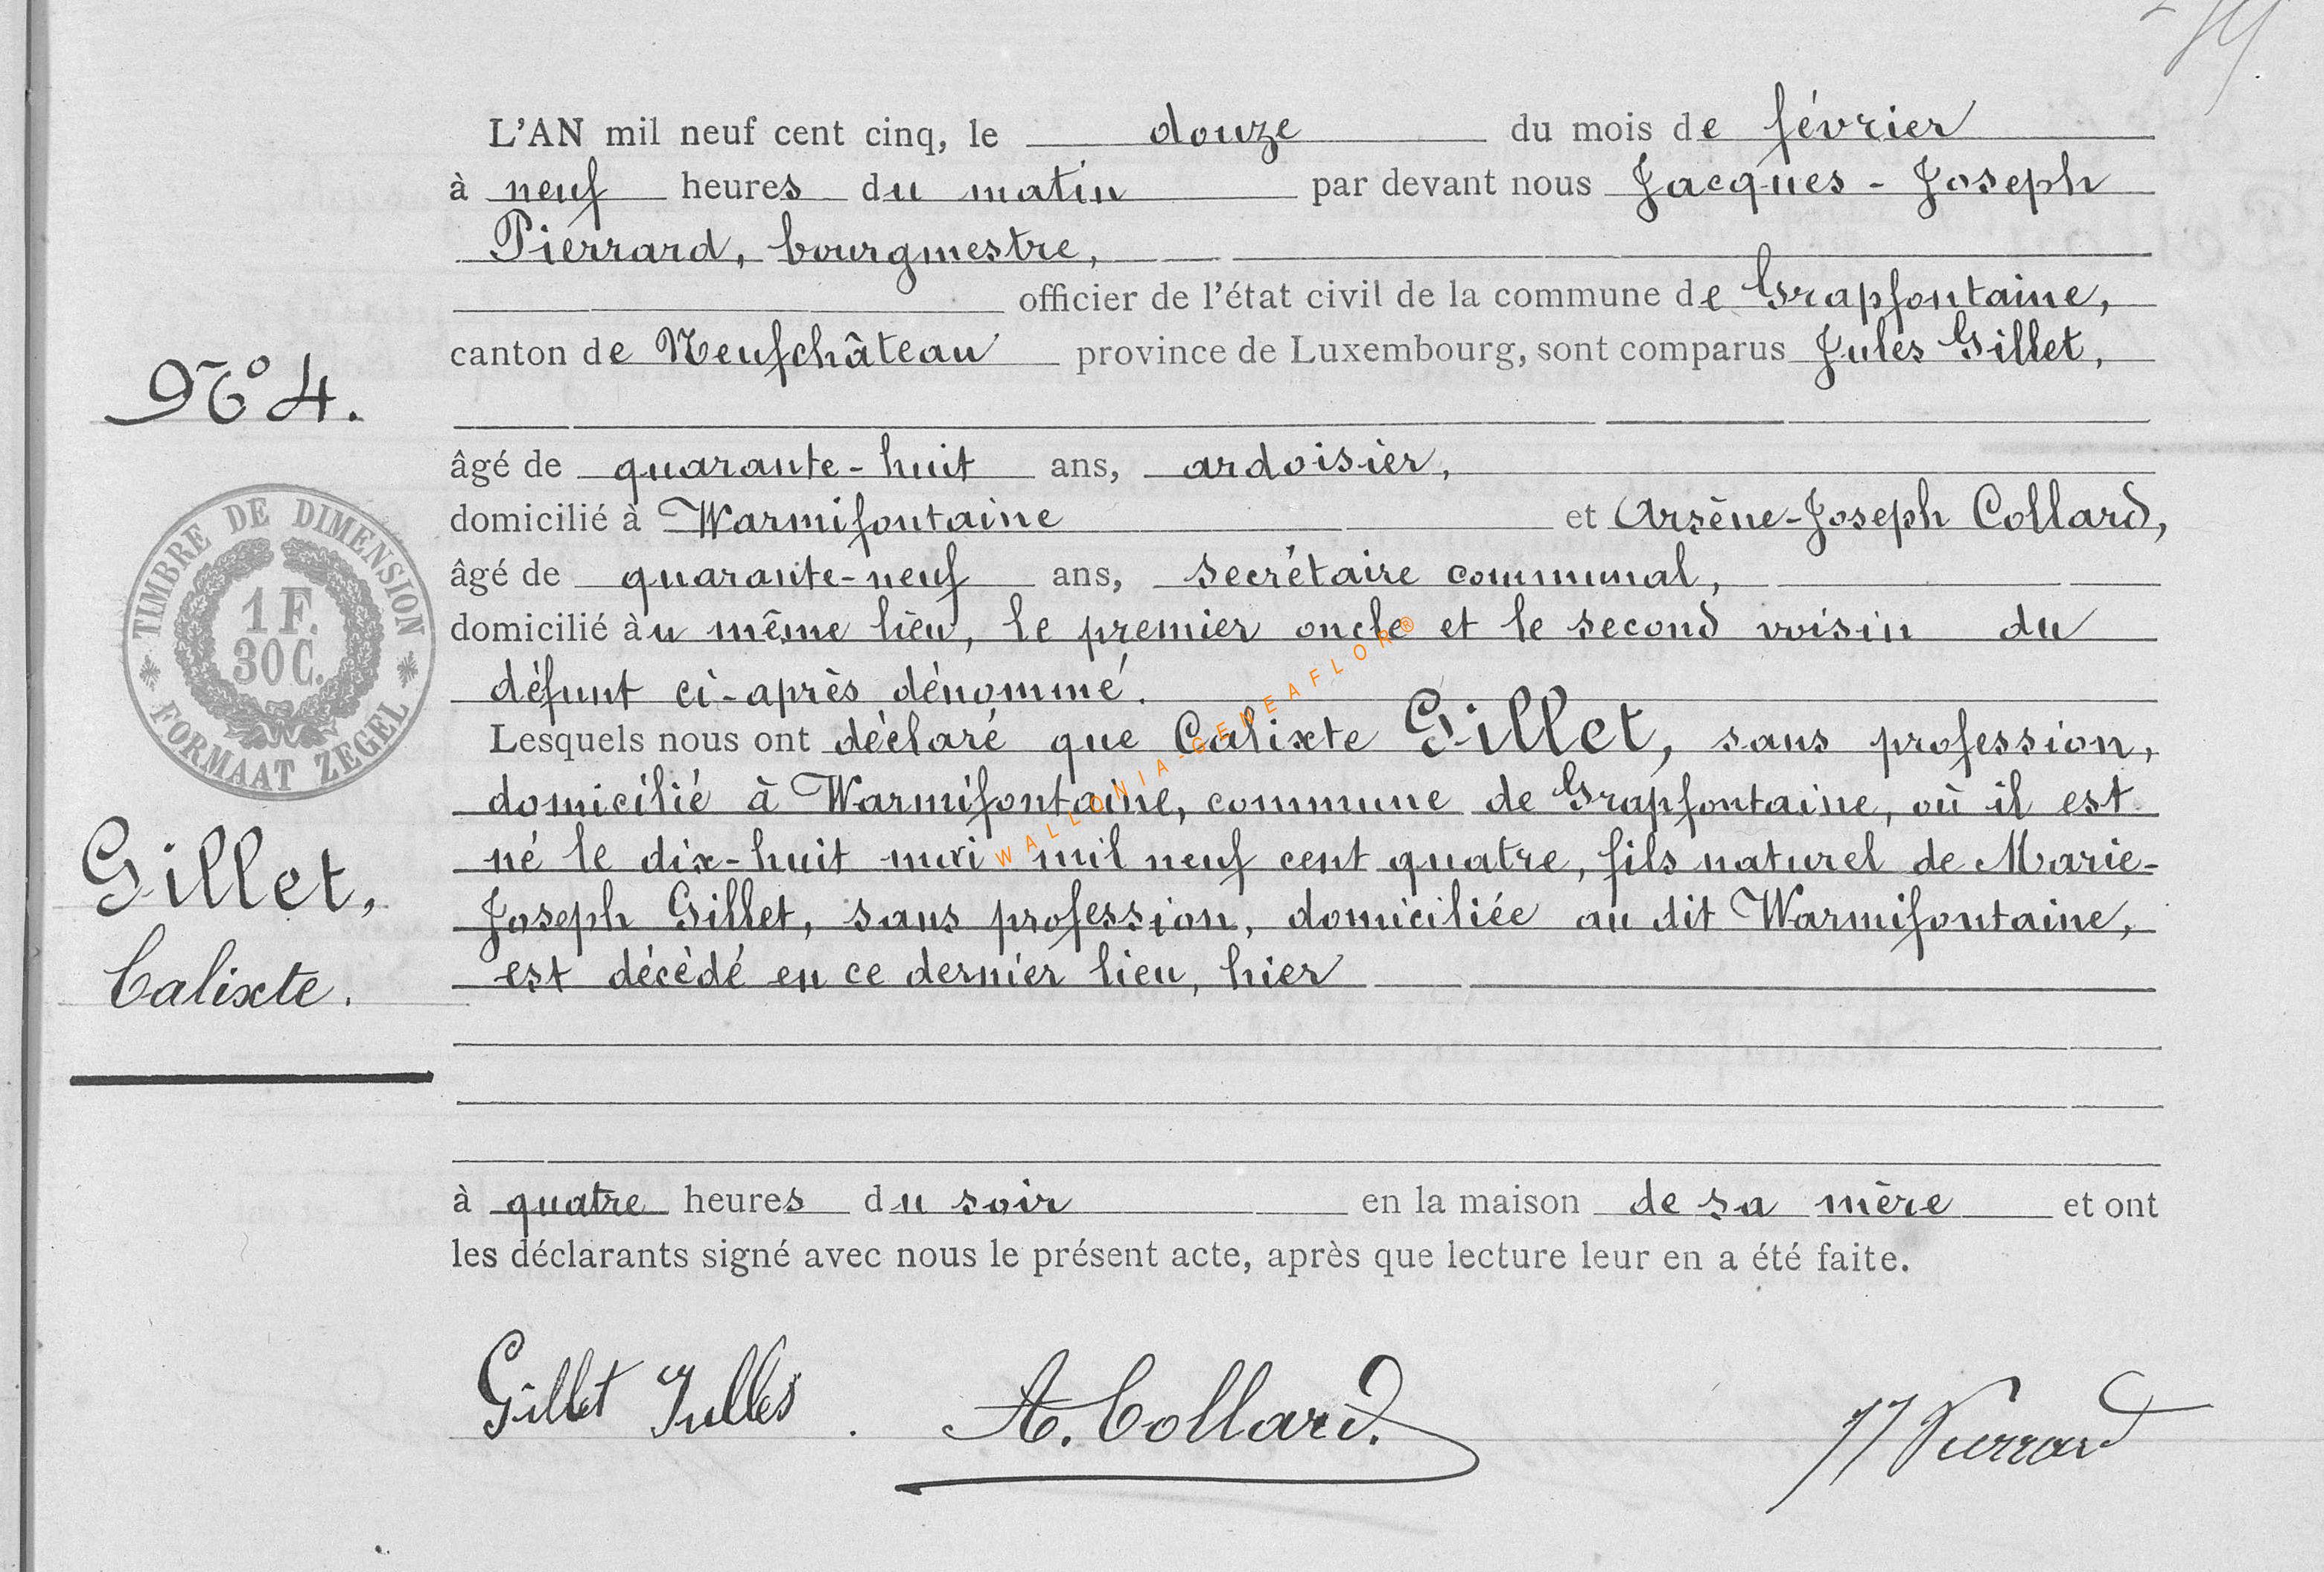 L'AN mil neuf cent cinq, le douze du mois de février
à neuf heures du matin par devant nous Jacques - Joseph
Pierrard, bourgmestre,
officier de l'état civil de la commune de Grapfontaine,
canton de Neufchâteau province de Luxembourg, sont comparus Jules Gillet,
N° 4.
âgé de quarante-huit ans, ardoisier,
domicilié à Warmifontaine et Arsène-Joseph Collard,
âgé de quarante-neuf ans, secrétaire communal,
domicilié au même lieu, le premier oncle et le second voisin du
défunt ci-après dénommé.
TIMBRE DE DIMENSION
1 F.
30 C.
FORMAAT ZEGEL
Lesquels nous ont déclaré que Calixte Gillet, sans profession,
domicilié à Warmifontaine, commune de Grapfontaine, où il est
né le dix-huit mai mil neuf cent quatre, fils naturel de Marie-
Joseph Gillet, sans profession, domiciliée au dit Warmifontaine,
est décédé en ce dernier lieu, hier
Gillet,
Calixte.
à quatre heures du soir en la maison de sa mère et ont
les déclarants signé avec nous le présent acte, après que lecture leur en a été faite.
Gillet Julles. A. Collard. JJ Pierrard
WALLONIA-GENEAFLOR®